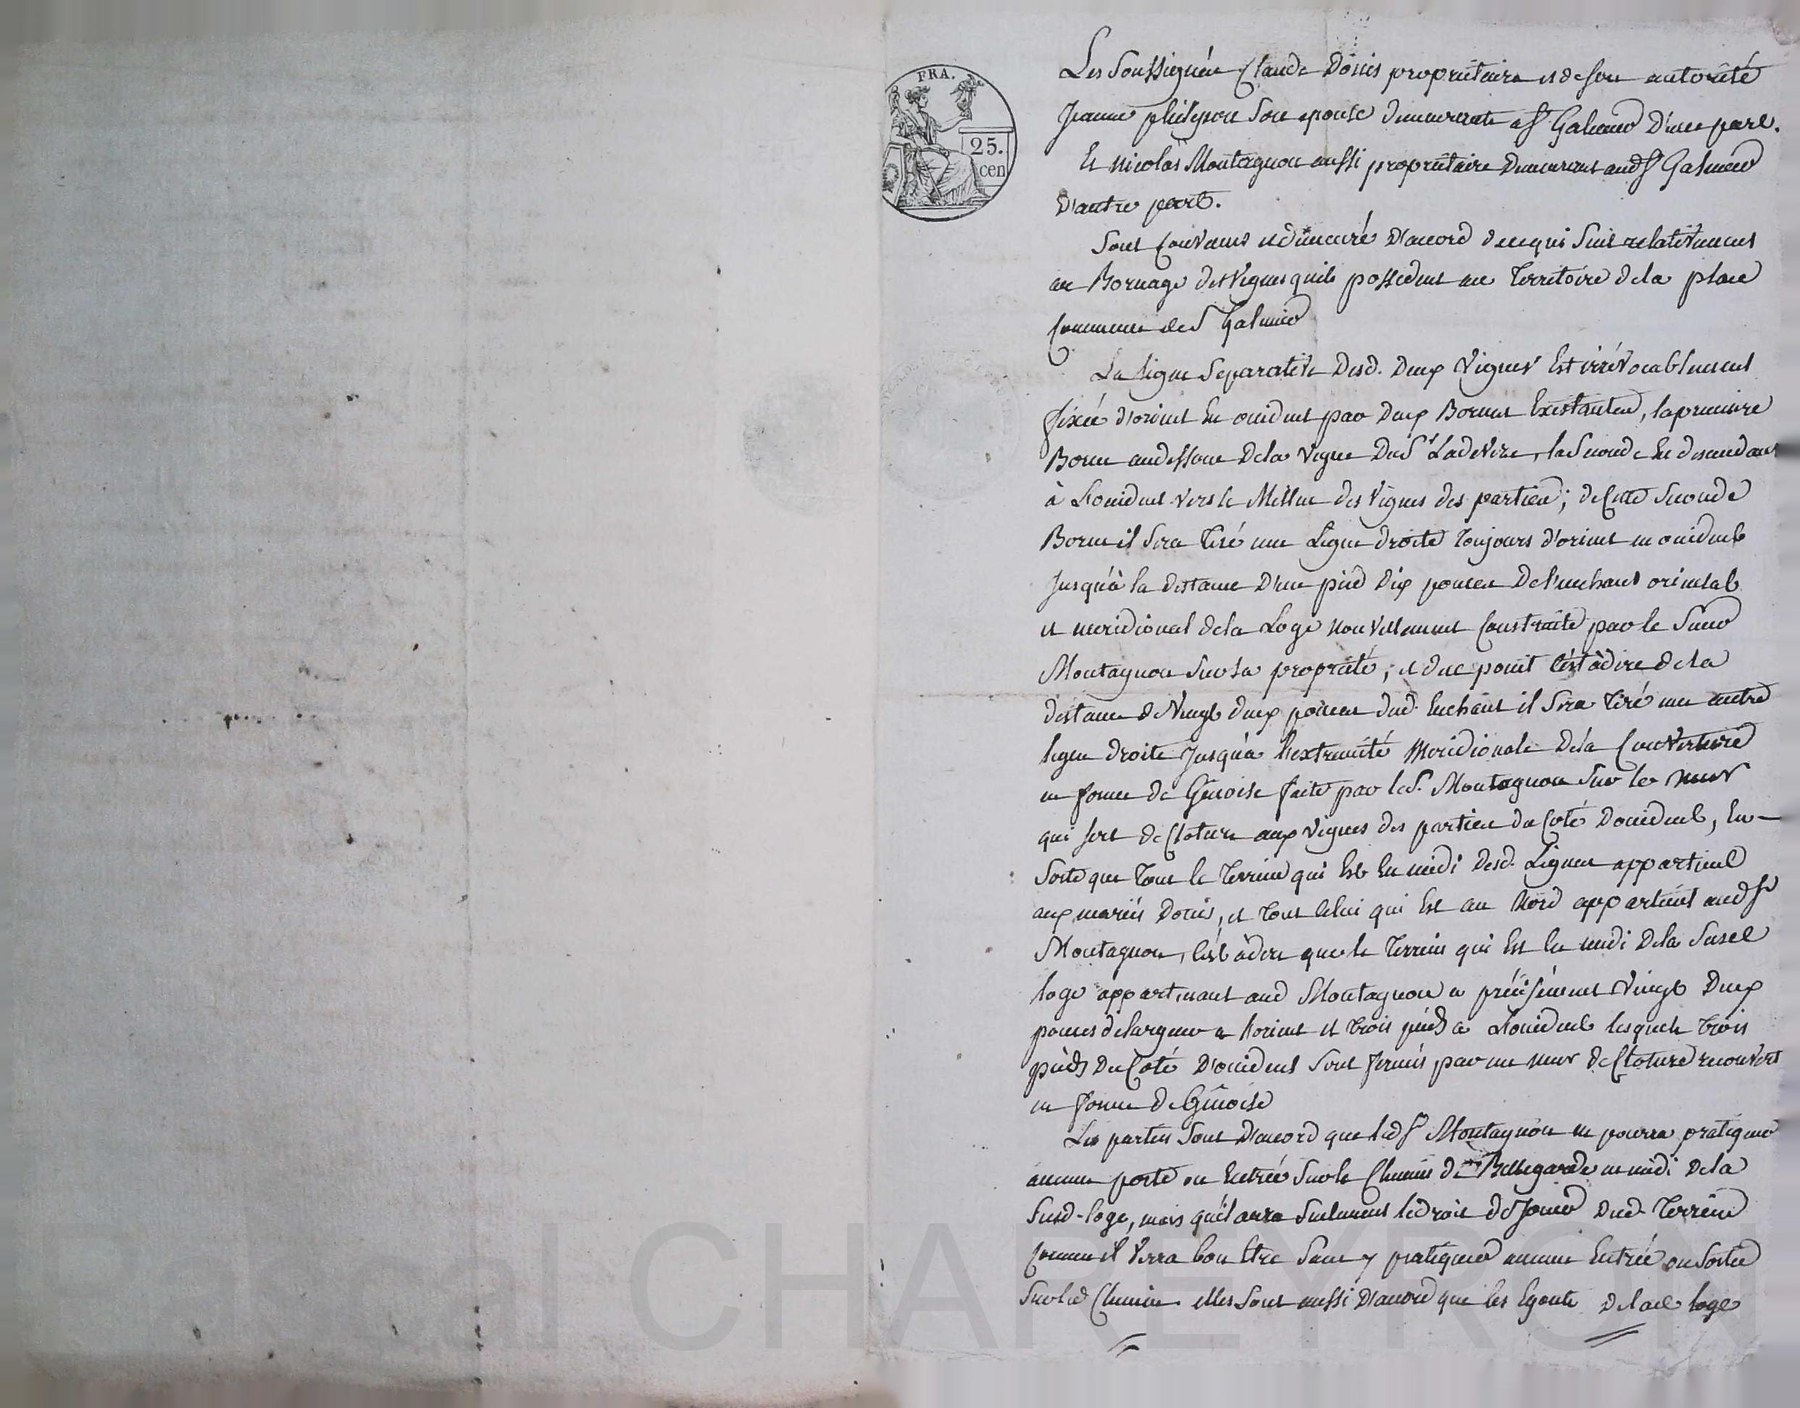 FRA.
25.
cen
Les Soussignés Claude Douis propriétaire et de son autorité
Jeanne philipon son epouse demeurants a St Galmier D'une part.
Et nicolas Montagnon aussi propriétaire Demeurant aud St Galmier
D'autre part.
Sont Convenus et demeuré D'accord de ce qui Suit relativement
au Bornage des Vignes quils possedent au Territoire de la place
Commune de St Galmier
La ligne Separative Desd. Deux Vignes Est irrévocablement
fixée d'orient En occident par Deux Bornes Existantes, la premiere
Borne au dessous De la Vigne Du Sr Ladeveze, la Seconde En descendant
à L'occident vers le Millieu des Vignes des parties; de Cette Seconde
Borne il Sera Tiré une Ligne droite Toujours d'orient en occident
Jusqu'à la distance D'un pied Dix pouces De l'enchant oriental
et meridional de la Loge nouvellement Construite par le Sieur
Montagnon Sur Sa propriété; et du point C'est à dire de la
distance de Vingt deux pouces dud. Enchant il Sera Tiré une autre
ligne droite Jusqu'à l'extremité Meridionale De la Couverture
en forme de Génoise faite par le S. Montagnon Sur le mur
qui sert de Cloture aux Vignes des parties du Coté D'occident, En
Sorte que Tout le Terrein qui Est En midi Desd. Lignes appartient
aux mariés Douis, et Tout Celui qui Est au Nord appartient aud Sr
Montagnon, C'est à dire que le Terrein qui Est En midi De la Susd
loge appartenant aud Montagnon a précisément Vingt Deux
pouces de largeur a L'orient et Trois pieds a L'occident lesquels Trois
pieds Du Coté D'occident Sont fermés par un mur de Cloture recouvert
en forme de Génoise
Les parties Sont D'accord que led Sr Montagnon ne pourra pratiquer
aucune porte ou Entrée Sur le Chemin de Bellegarde en midi De la
Susd. loge, mais qu'il aura Seulement le droit de Jouir Dud. Terrein
Comme il Verra bon Etre Sans y pratiquer aucune Entrée ou Sortie
Sur led Chemin. elles Sont aussi D'accord que les Egouts De lad. loge
CHAREYRON